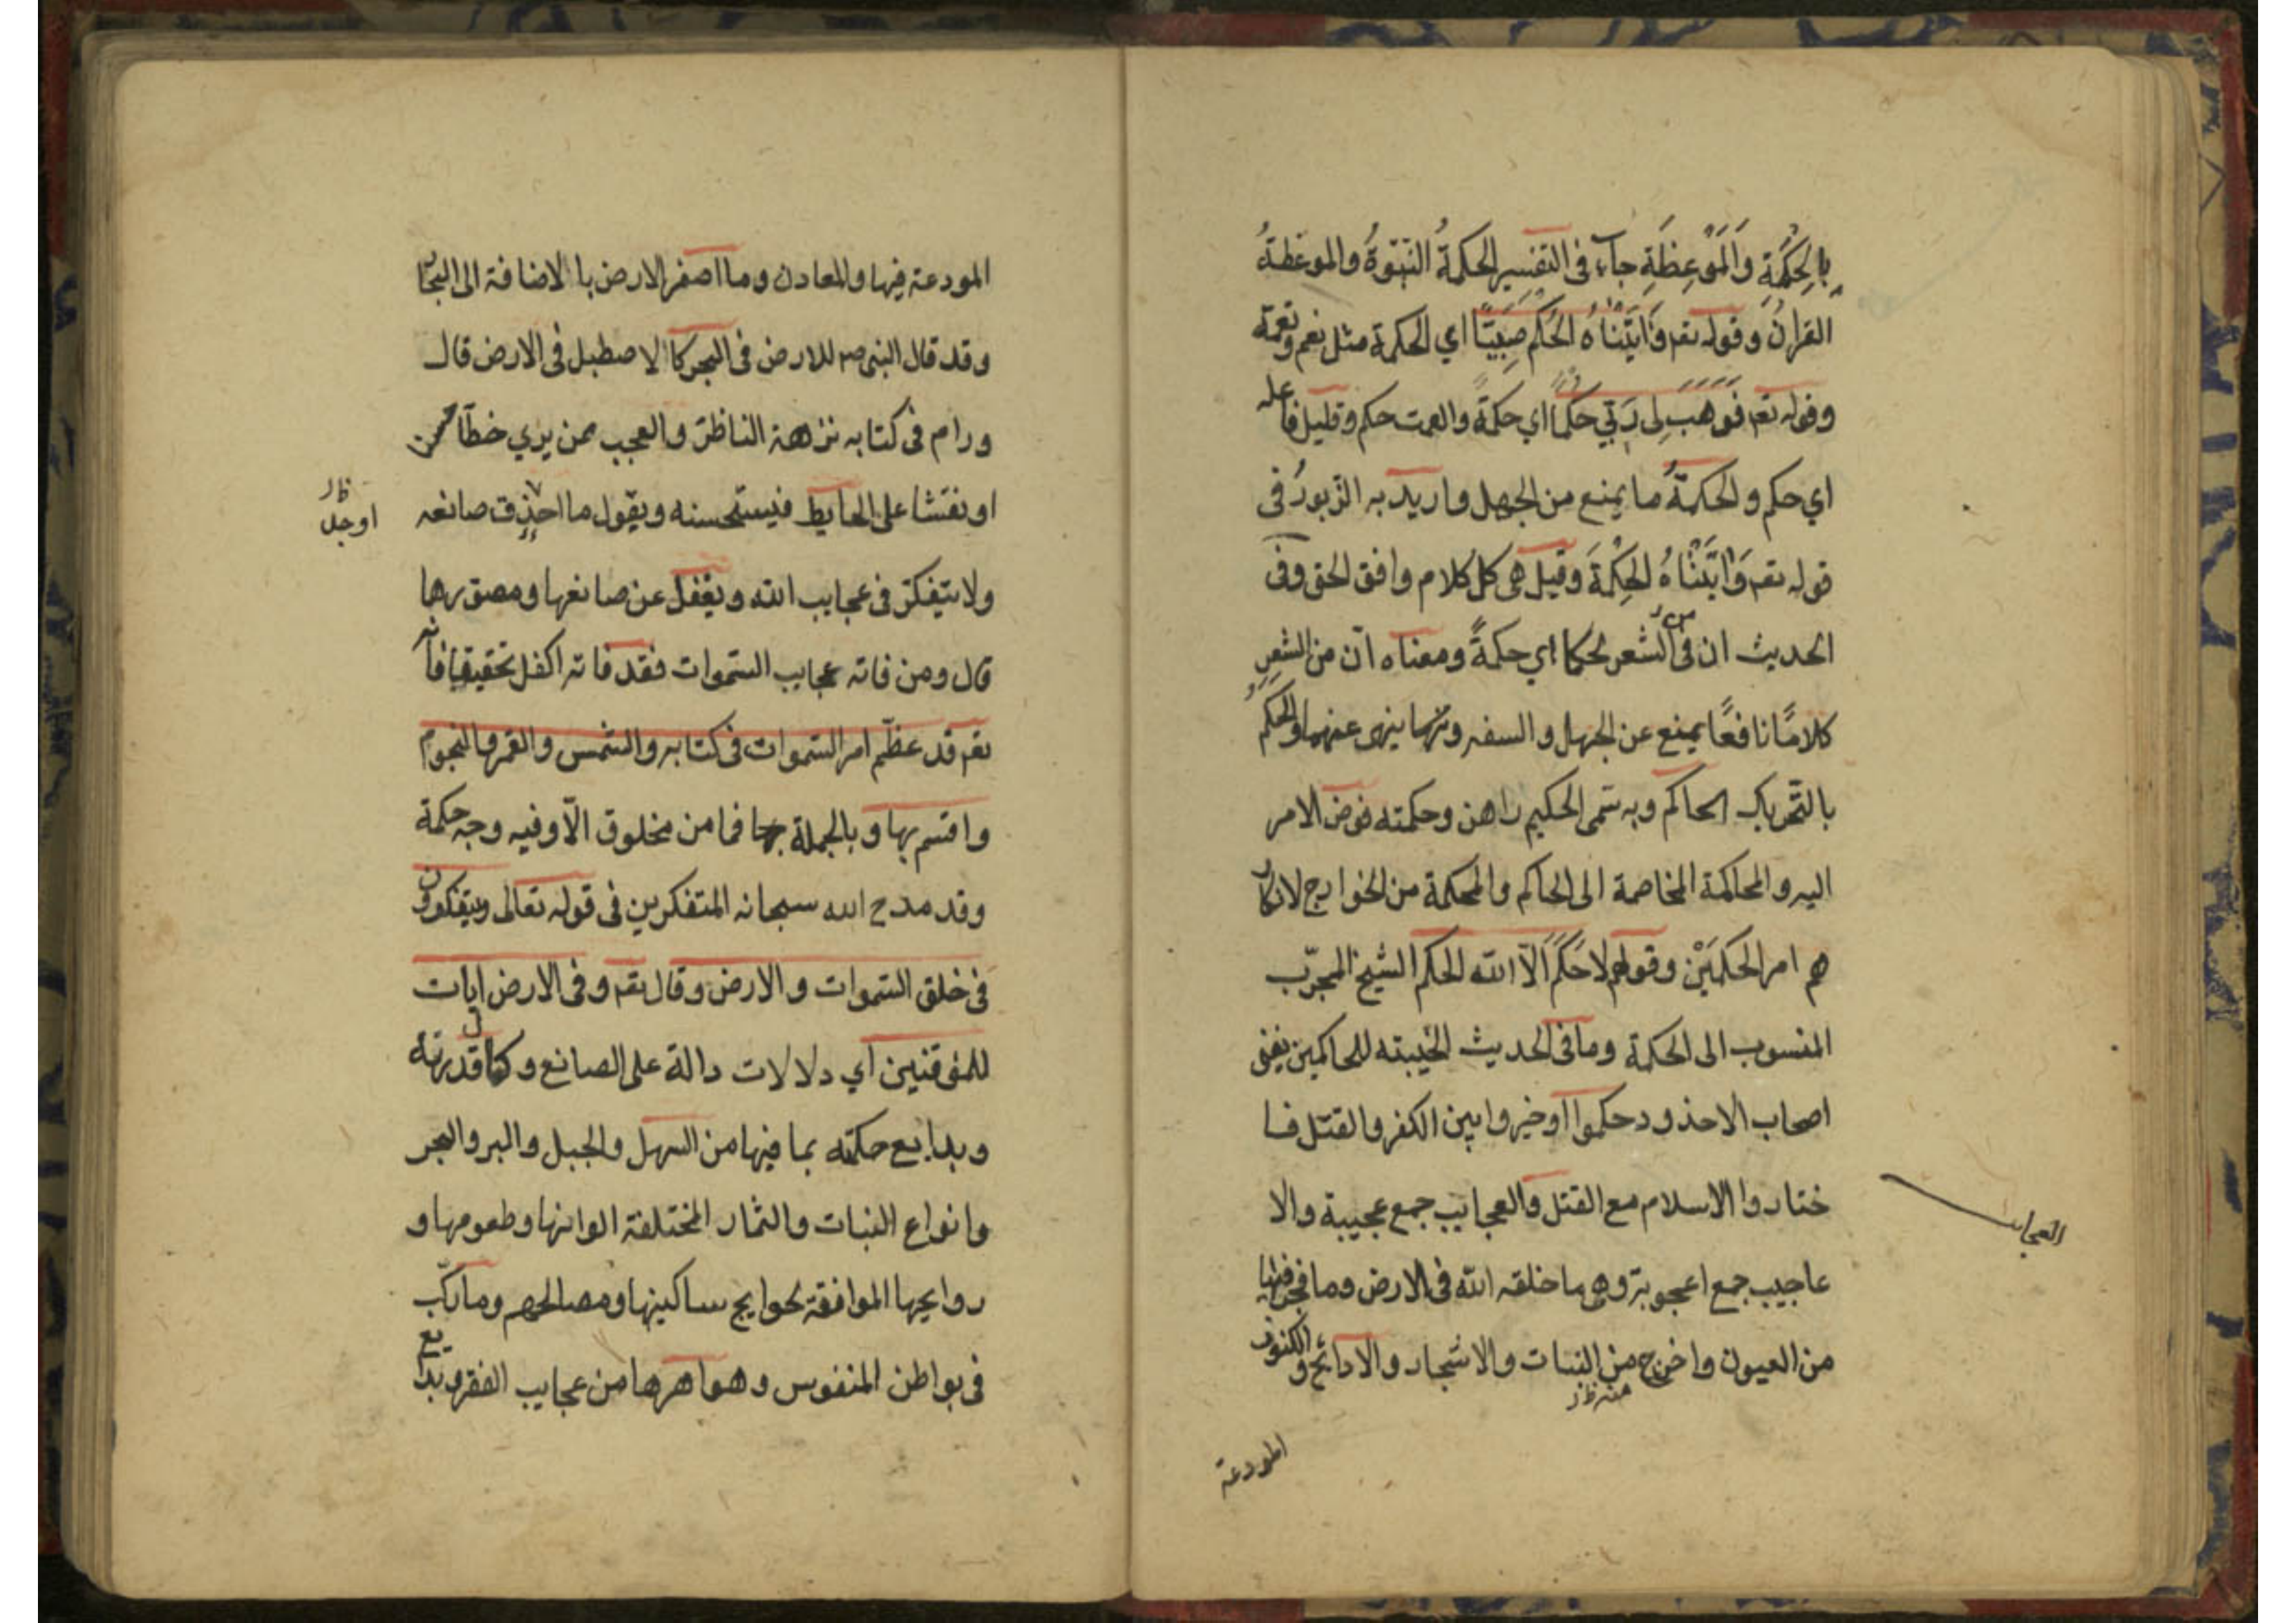 بِالْحِكْمَةِ وَالْمَوْعِظَةِ جاء في التفسير الحكمةُ النبوّةُ والموعظةُ
القرانُ وقوله تعم وَاتَيْنَاهُ الحُكْم صَبِيًّا اي الحكمة مثل نعم ونعمة
وقوله تعم فَوَهَبَ لِى رَبّي حكمًا اي حكمةً والصمت حكم وقليل فاعله
اي حكم والحكمةُ ما يمنع من الجهل واريد به الزبورُ فى
قوله تعم وَاتَيْنَاهُ الحِكْمَةَ وقيل هى كل كلام وافق الحق وفى
الحديث ان فى الشعر لحكما اي حكمةً ومعناه ان من الشعرِ
كلامًا نافعًا يمنع عن الجهل والسفه وينهى عنهما والحَكَمُ
بالتحريك الحاكم وبه سمى الحكيم وحكمته فوض الامر
اليه والمحاكمة المخاصمة الى الحاكم والمحكمة من الخوارج لانكار
هم امر الحَكَمَيْن وقولهم لا حَكَمَ الّا الله الحكم الشيخ المجرّب
المنسوب الى الحكمة وما فى الحديث الجنة للحاكمين يعنى
اصحاب الاخدود حكموا اوخيروا بين الكفر والقتل فا
ختاروا الاسلام مع القتل والعجايب جمع عجيبة والا
العجايب
عاجيب جمع اعجوبة وهى ما خلقه الله فى الارض وما فجر فيها
من العيون واخرج من النبات والاشجار والكنوز
منه ظ
المودعة
المودعة فيها والمعادن وما اصغر الارض بالاضافة الى البحار
وقد قال النبى ص للارض فى البحر كالاصطبل فى الارض قال
ورام فى كتابه نزهة الناظر والعجب ممن يري خطًا حسنا
او نقشا على الحايط فيستحسنه ويقول ما احذق صانعه
ظ
اوجد
ولا يتفكر فى عجايب الله ويغفل عن صانعها ومصورها
قال ومن فاته عجايب السموات فقد فاته الكل تحقيقا فانه
تعم قد عظّم امر السموات فى كتابه والشمس والقمر والنجوم
واقسم بها وبالجملة فما من مخلوق الّا وفيه وجه حكمة
وقد مدح الله سبحانه المتفكرين فى قوله تعالى ويتفكرون
فى خلق السموات والارض وقال تعم وفى الارض ايات
للموقنين اي دلالات دالة على الصانع وكمال قدرته
وبدايع حكمته بما فيها من السهل والجبل والبر والبحر
وانواع النبات والثمار المختلفة الوانها وطعومها و
روايحها الموافقة لحوايج ساكنيها ومصالحهم وما ركّب
فى بواطن النفوس وظواهرها من عجايب الفقر وبدايع